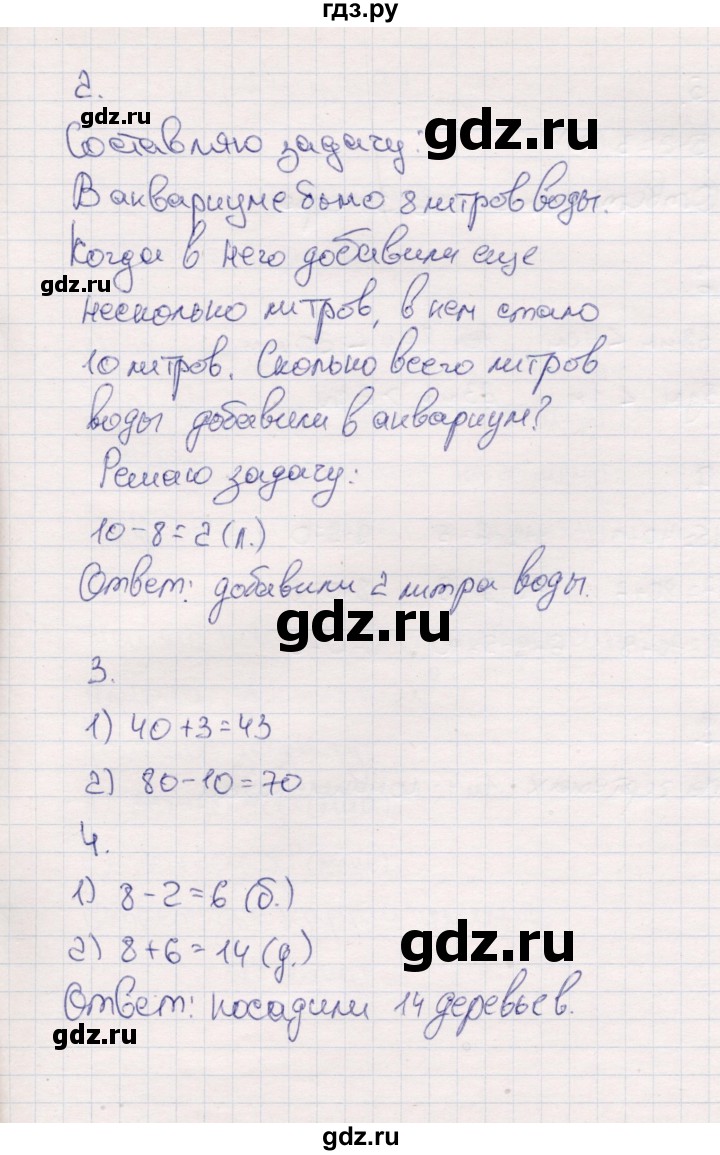 гдз.ру
2.
gdz.ru
Составляю задачу:
gdz.ru
В аквариуме было 8 литров воды.
Когда в него добавили еще
gdz.ru
несколько литров, в нем стало
10 литров. Сколько всего литров
воды добавили в аквариум?
Решаю задачу:
10-8=2(л.)
Ответ: добавили 2 литра воды.
gdz.ru
3.
1) 40+3=43
2) 80-10=70
4.
1) 8-2=6 (б.)
2) 8+6=14 (д.)
gdz.ru
Ответ: посадили 14 деревьев.
gdz.ru
gdz.ru